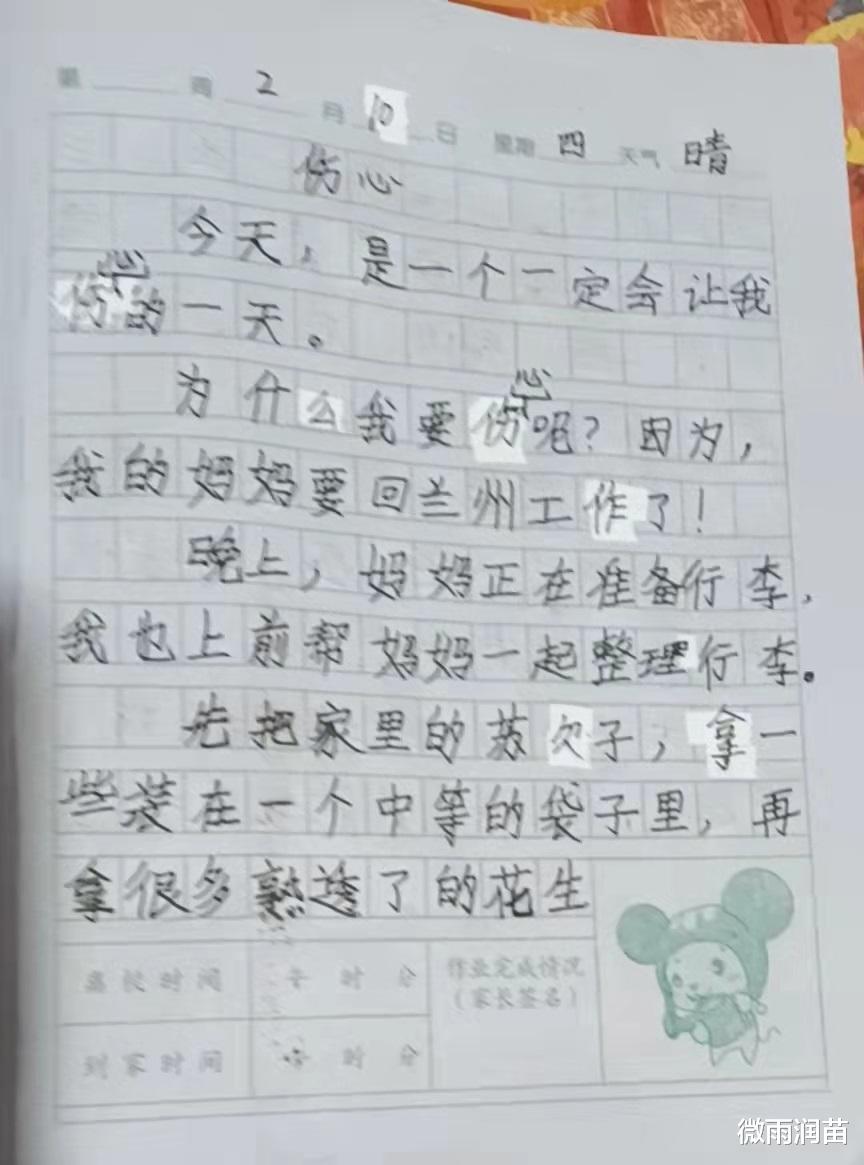 第 周 2 月 10 日 星期 四 天气 晴
伤心
今天，是一个一定会让我
伤心的一天。
为什么我要伤心呢？因为，
我的妈妈要回兰州工作了！
晚上，妈妈正在准备行李，
我也上前帮妈妈一起整理行李。
先把家里的苏欠子，拿一
些装在一个中等的袋子里，再
拿很多熟透了的花生
离校时间 午 时 分 作业完成情况
（家长签名）
到家时间 午 时 分
微雨润苗